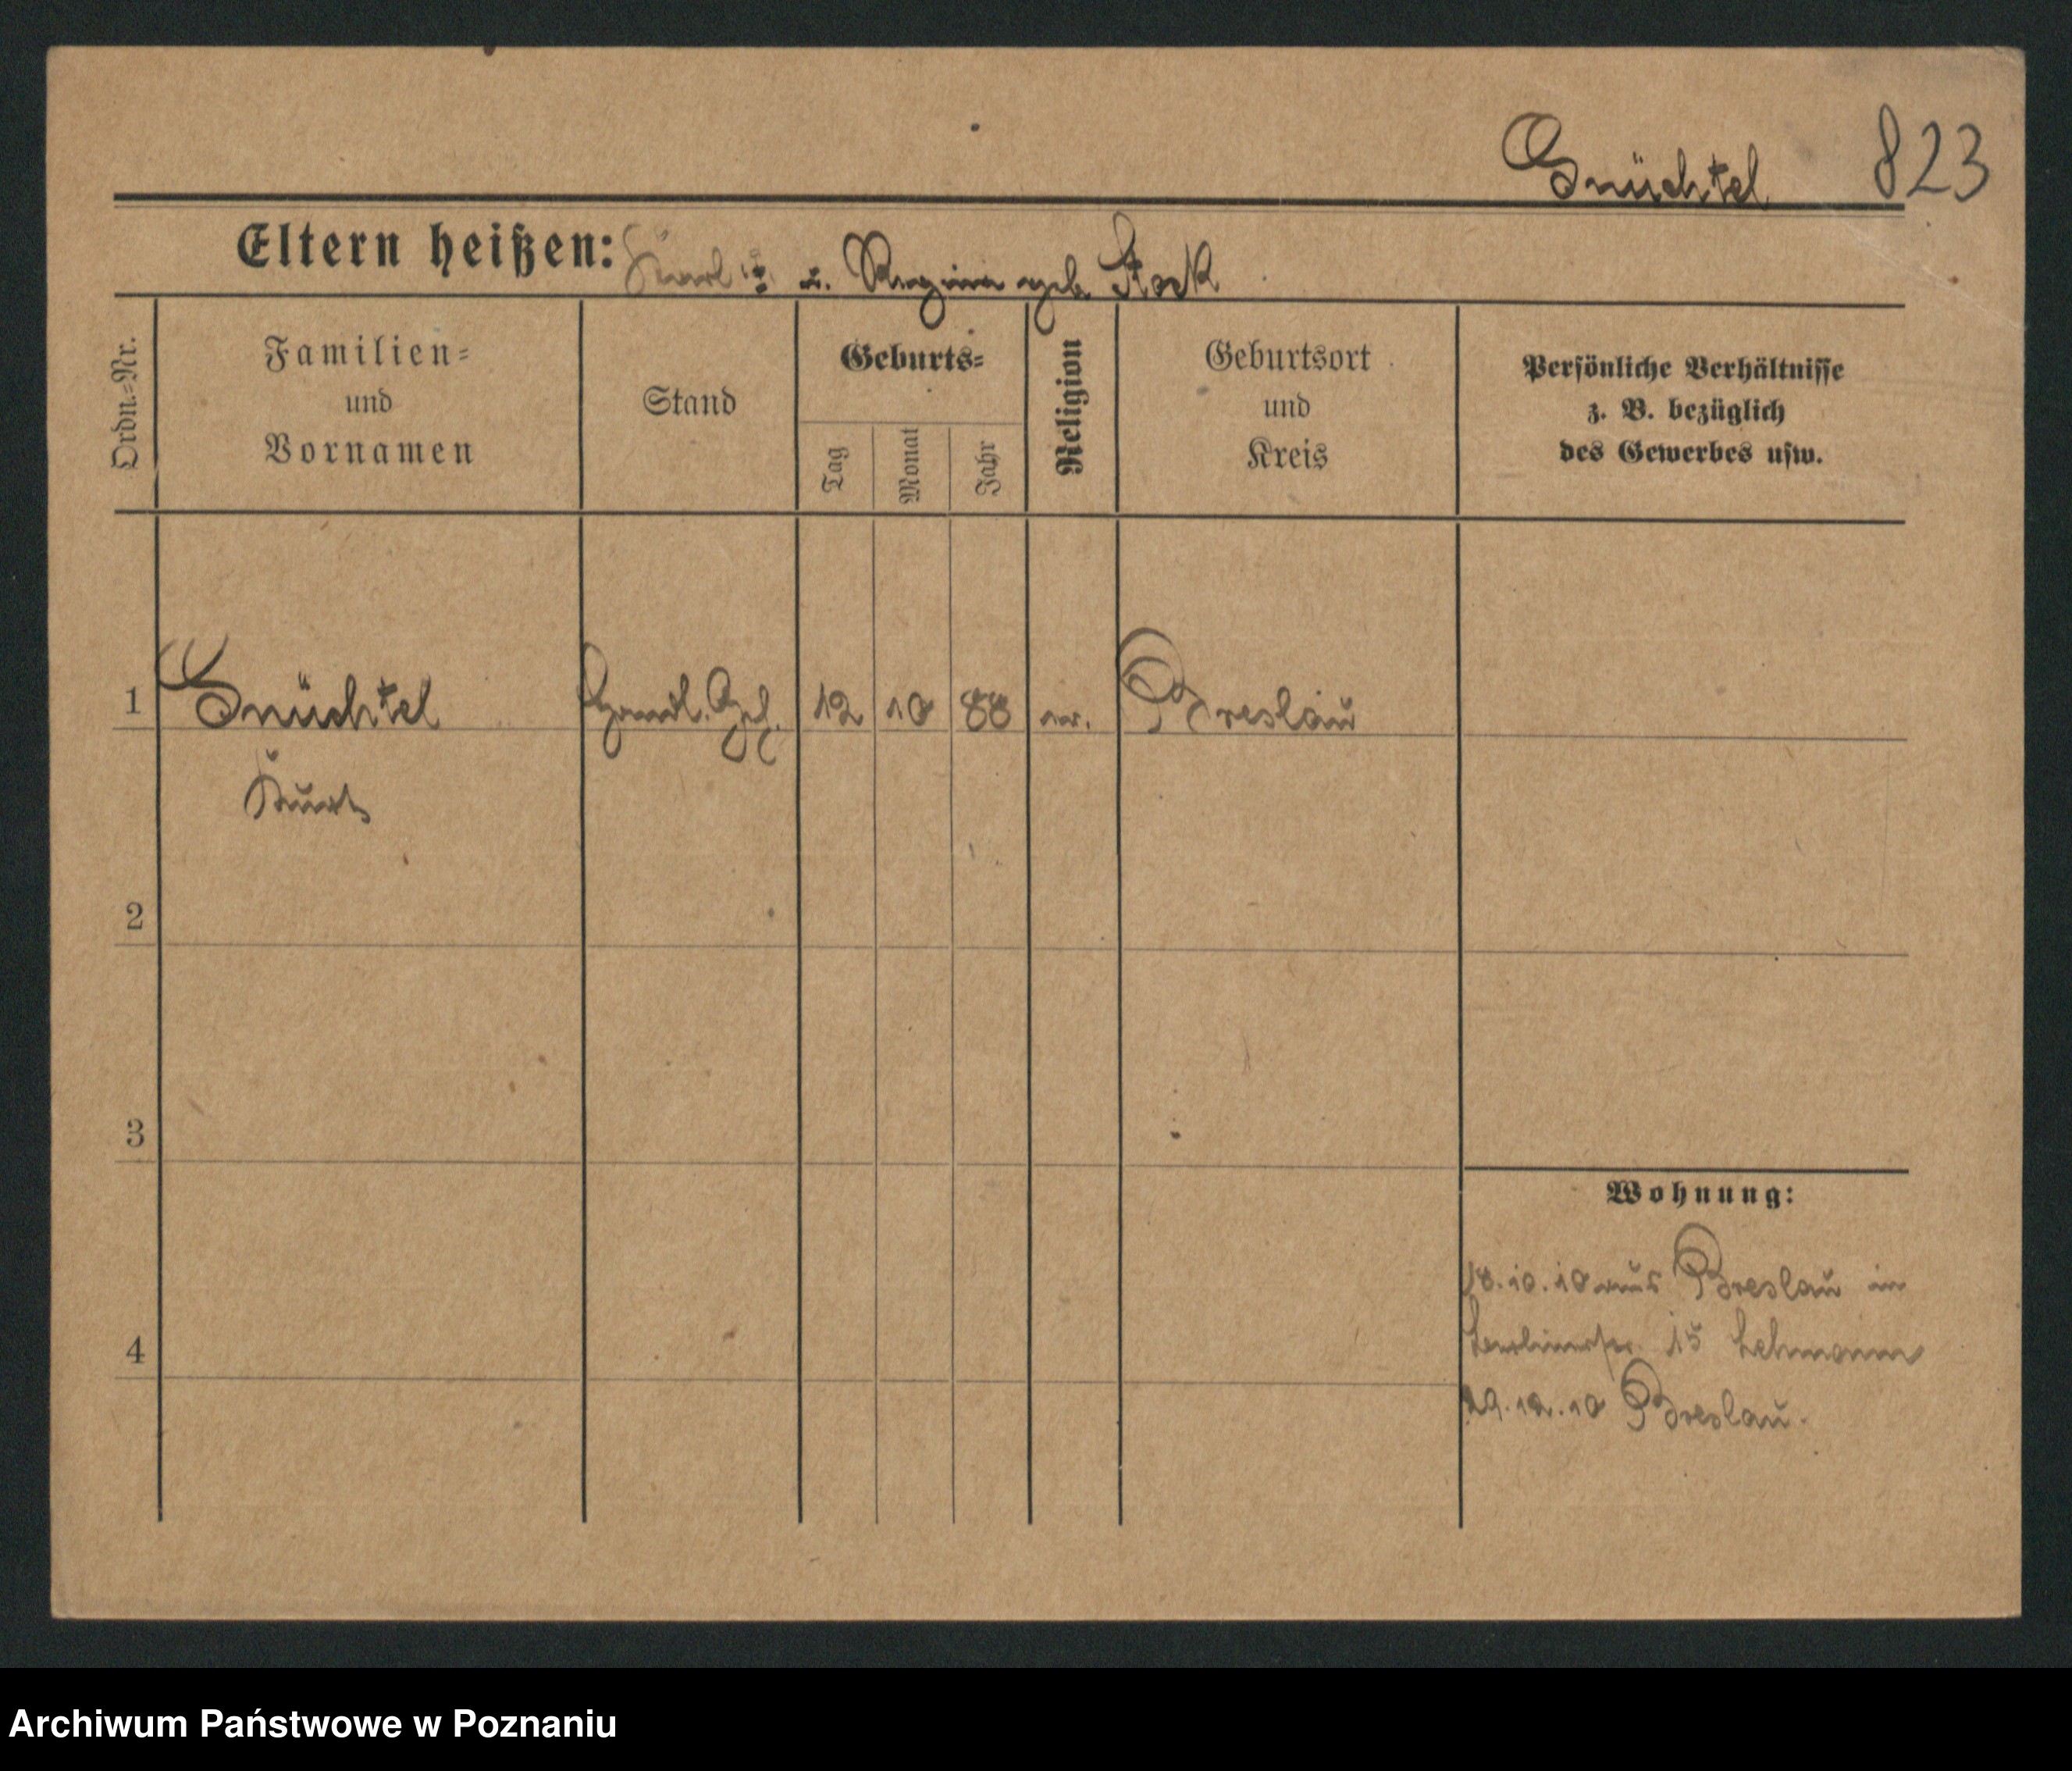 Gnüchtel 823
Eltern heißen: Karl u. Regina geb Stock
Ordn.-Nr.
Familien-
und
Vornamen
Stand
Geburts-
Tag
Monat
Jahr
Religion
Geburtsort
und
Kreis
Persönliche Verhältnisse
z. B. bezüglich
des Gewerbes usw.
1 Gnüchtel Handl. Geh. 12 10 88 Breslau
Kurt
2
3
4
Wohnung:
18.10.10 aus Breslau in
Berlinerstr. 15 Lehmann
29.12.10 Breslau.
Archiwum Państwowe w Poznaniu